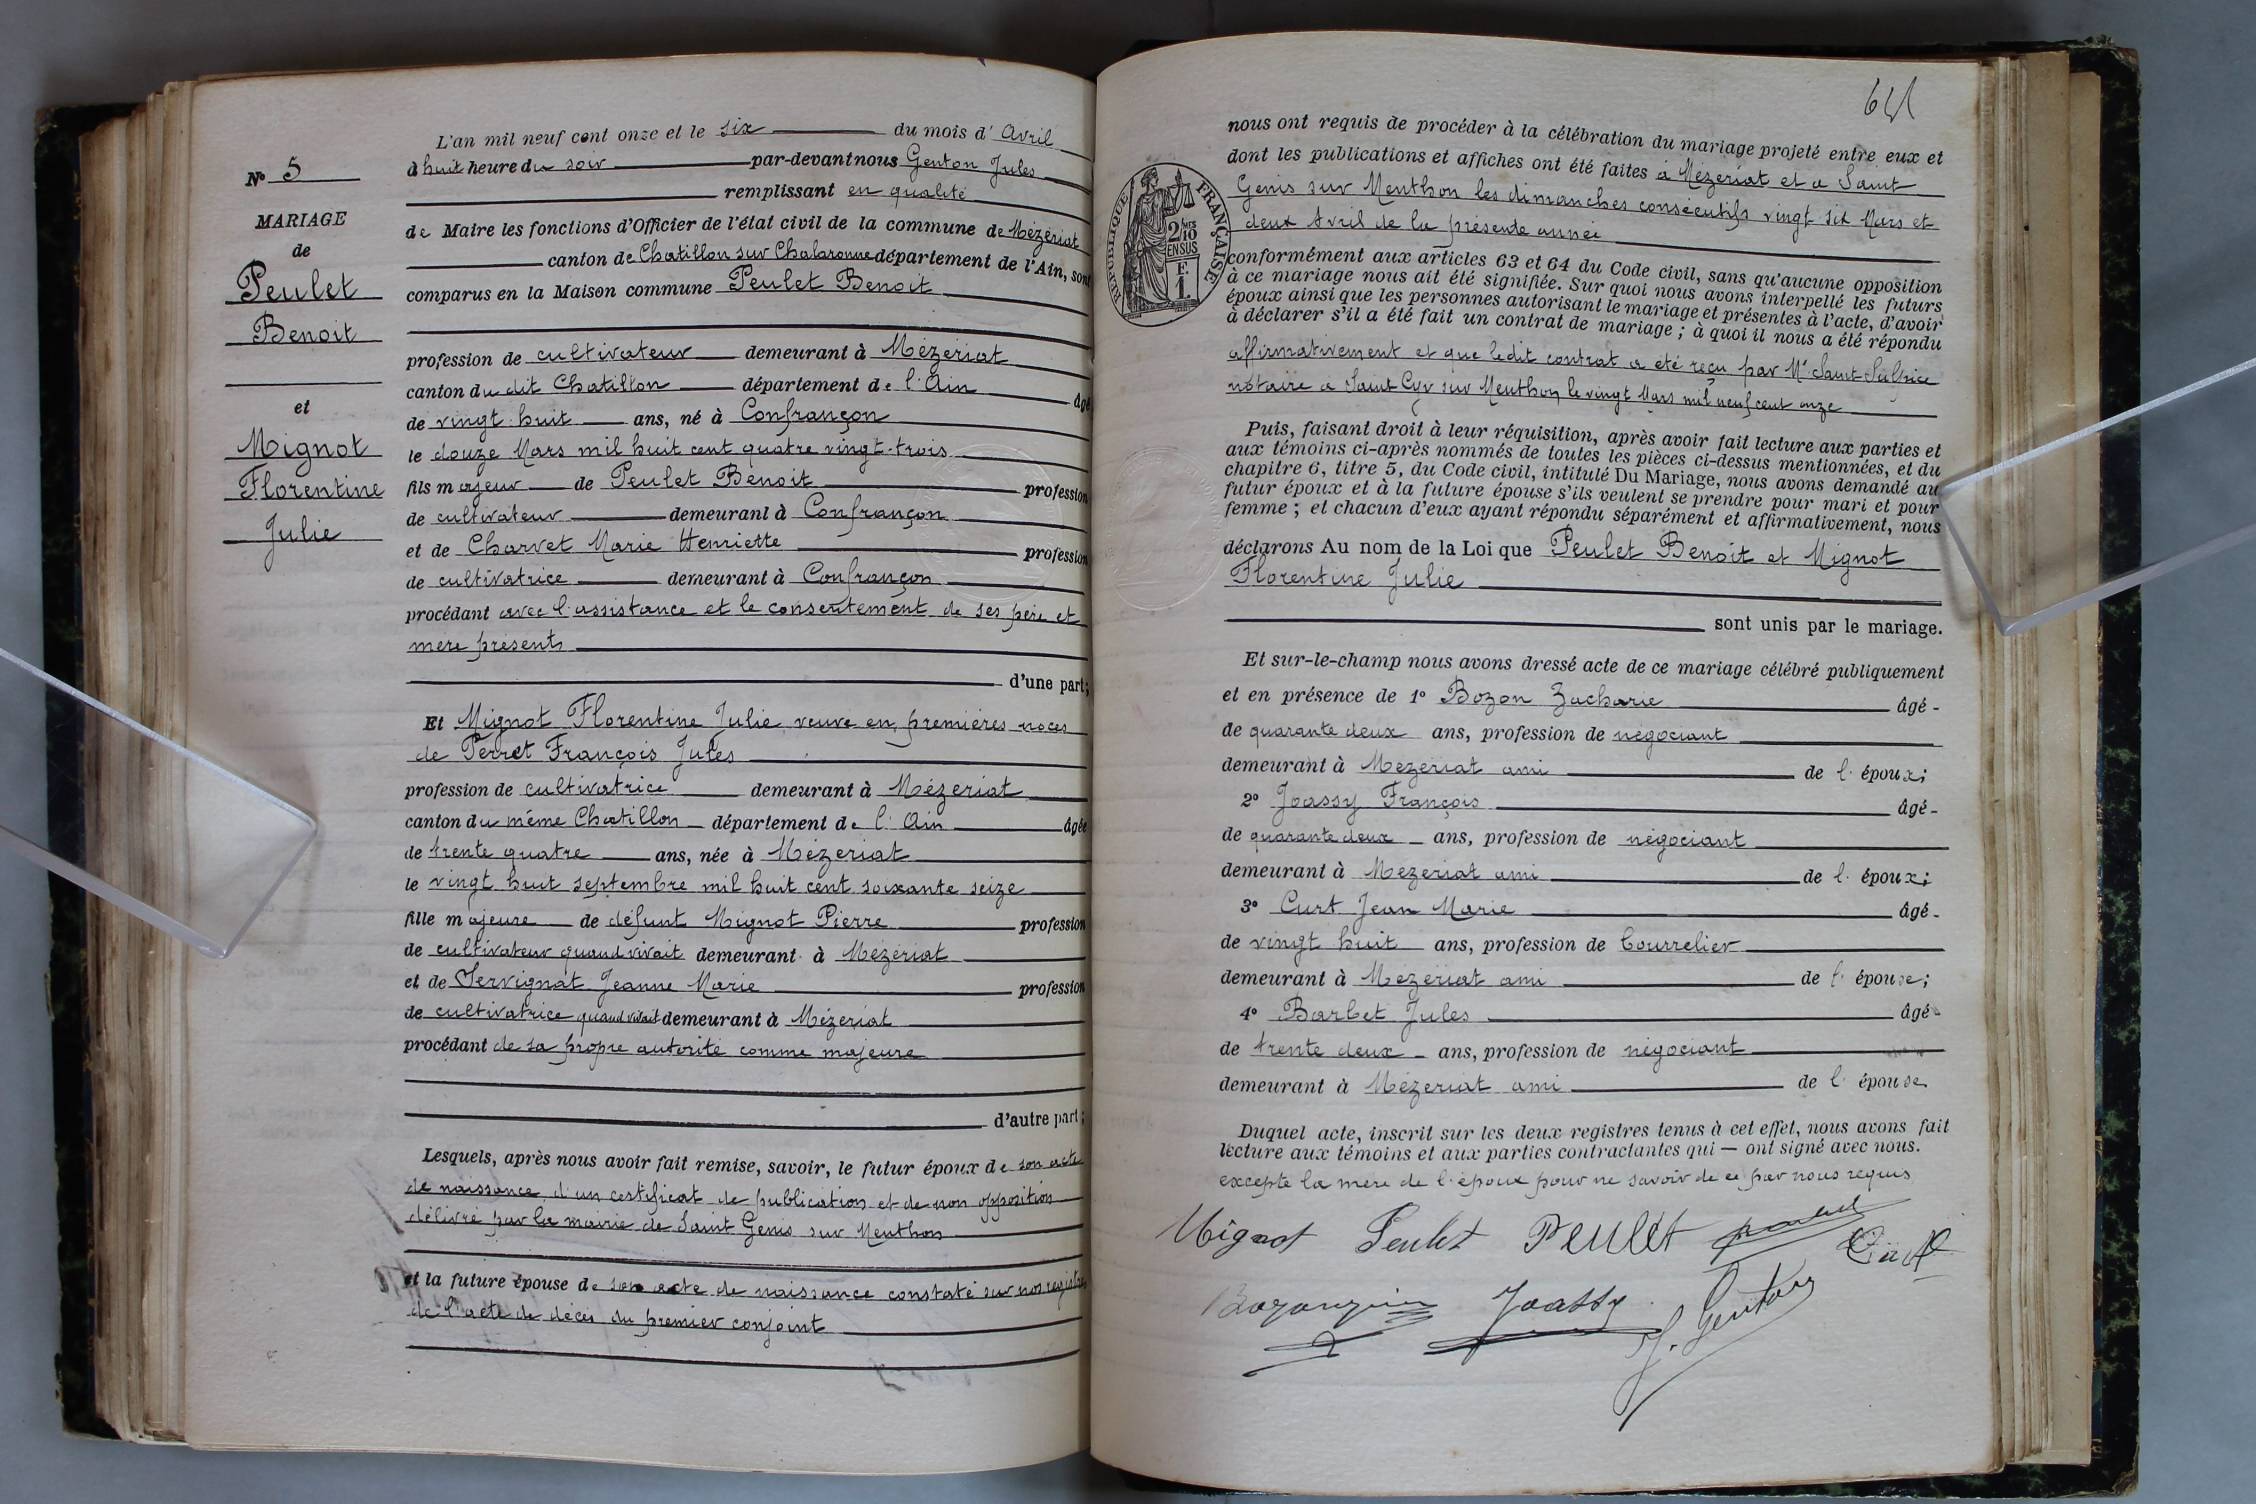 L'an mil neuf cent onze et le six du mois d' Avril
à huit heure du soir par-devant nous Genton Jules
remplissant en qualité
de Maire les fonctions d'Officier de l'état civil de la commune de Mézériat
canton de Chatillon sur Chalaronne département de l'Ain, sont
comparus en la Maison commune Peulet Benoit
N° 5
MARIAGE
de
Peulet
Benoit
et
Mignot
Florentine
Julie
profession de cultivateur demeurant à Mézeriat
canton du dit Chatillon département de l'Ain âgé
de vingt-huit ans, né à Confrançon
le douze Mars mil huit cent quatre vingt-trois
fils majeur de Peulet Benoit profession
de cultivateur demeurant à Confrançon
et de Charvet Marie Henriette profession
de cultivatrice demeurant à Confrançon
procédant avec l'assistance et le consentement de ses père et
mère présents
d'une part;
Et Mignot Florentine Julie veuve en premières noces
de Perret François Jules
profession de cultivatrice demeurant à Mézeriat
canton du même Chatillon département de l'Ain âgée
de trente quatre ans, née à Mézeriat
le vingt huit septembre mil huit cent soixante seize
fille majeure de défunt Mignot Pierre profession
de cultivateur quand vivait demeurant à Mézériat
et de Servignat Jeanne Marie profession
de cultivatrice quand vivait demeurant à Mézeriat
procédant de sa propre autorité comme majeure
d'autre part;
Lesquels, après nous avoir fait remise, savoir, le futur époux de son acte
de naissance, d'un certificat de publication et de non opposition
délivré par la mairie de Saint Genis sur Menthon
et la future épouse de son acte de naissance constaté sur nos registres
de l'acte de décès du premier conjoint
nous ont requis de procéder à la célébration du mariage projeté entre eux et
dont les publications et affiches ont été faites à Mézériat et a Saint
Genis sur Menthon les dimanches consécutifs vingt six Mars et
deux Avril de la présente année
RÉPUBLIQUE FRANÇAISE
2 MES
10
EN SUS
F.
1
conformément aux articles 63 et 64 du Code civil, sans qu'aucune opposition
à ce mariage nous ait été signifiée. Sur quoi nous avons interpellé les futurs
époux ainsi que les personnes autorisant le mariage et présentes à l'acte, d'avoir
à déclarer s'il a été fait un contrat de mariage; à quoi il nous a été répondu
affirmativement et que ledit contrat a eté reçu par Me Saint Sulpice
notaire a Saint Cyr sur Menthon le vingt Mars mil neuf cent onze
Puis, faisant droit à leur réquisition, après avoir fait lecture aux parties et
aux témoins ci-après nommés de toutes les pièces ci-dessus mentionnées, et du
chapitre 6, titre 5, du Code civil, intitulé Du Mariage, nous avons demandé au
futur époux et à la future épouse s'ils veulent se prendre pour mari et pour
femme; et chacun d'eux ayant répondu séparément et affirmativement, nous
déclarons Au nom de la Loi que Peulet Benoit et Mignot
Florentine Julie
sont unis par le mariage.
Et sur-le-champ nous avons dressé acte de ce mariage célébré publiquement
et en présence de 1° Bozon Zacharie âgé
de quarante deux ans, profession de négociant
demeurant à Mezeriat ami de l'époux;
2° Joassy François âgé
de quarante deux ans, profession de négociant
demeurant à Mezeriat ami de l'époux;
3° Curt Jean Marie âgé
de vingt huit ans, profession de bourrelier
demeurant à Mezeriat ami de l'épouse;
4° Barbet Jules âgé
de trente deux ans, profession de négociant
demeurant à Mézeriat ami de l'épouse
Duquel acte, inscrit sur les deux registres tenus à cet effet, nous avons fait
lecture aux témoins et aux parties contractantes qui — ont signé avec nous.
excepté la mère de l'époux pour ne savoir de ce par nous requis
Mignot Peulet Peulet Curt
Joassy J. Genton